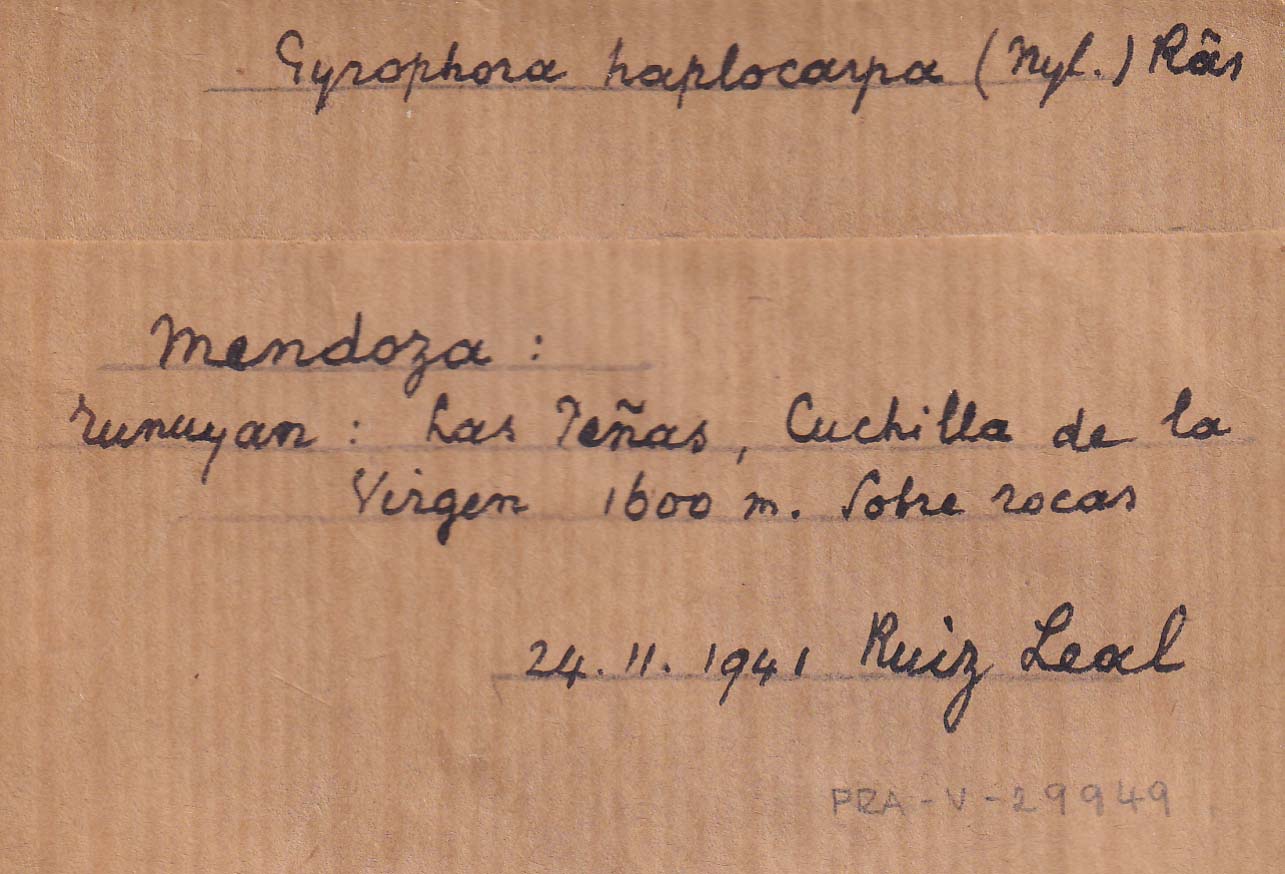 Gyrophora haplocarpa (Nyl.) Räs
Mendoza :
Tunuyan : Las Peñas, Cuchilla de la
Virgen 1600 m. Sobre rocas
24.11.1941 Ruiz Leal
PRA-V-29949